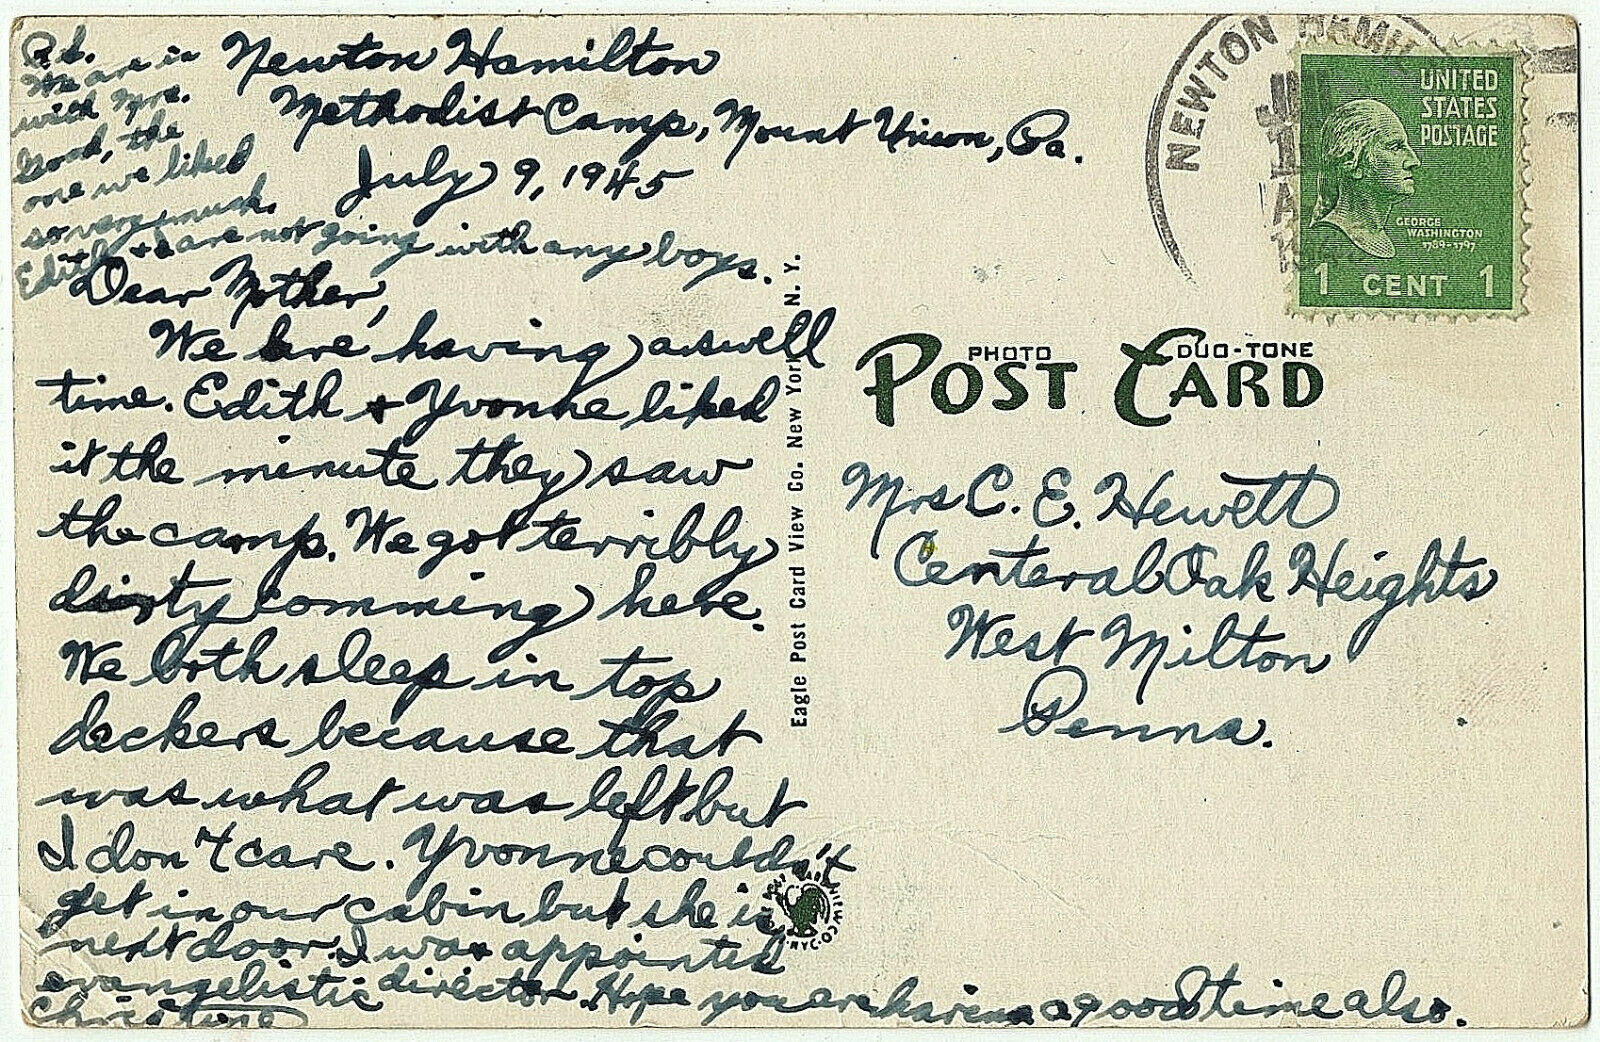 Newton Hamilton
Methodist Camp, Mount Union, Pa.
July 9, 1945
Dear Mother,
We are having a swell
time. Edith & Yvonne liked
it the minute they saw
the camp. We got terribly
dirty comming here.
We both sleep in top
deckers because that
was what was left but
I don't care. Yvonne couldn't
get in our cabin but she is
next door. I was appointed
evangelistic director. Hope you are having a good time also.
Christine
P.S.
We are in
with Mrs.
Good, the
one we liked
so very much.
Edith & I are not going with any boys.
Eagle Post Card View Co. New York N. Y.
NEWTON HAM
UNITED
STATES
POSTAGE
GEORGE
WASHINGTON
1789-1797
1 CENT 1
PHOTO DUO-TONE
POST CARD
Mrs C. E. Hewett
Centeral Oak Heights
West Milton
Penna.